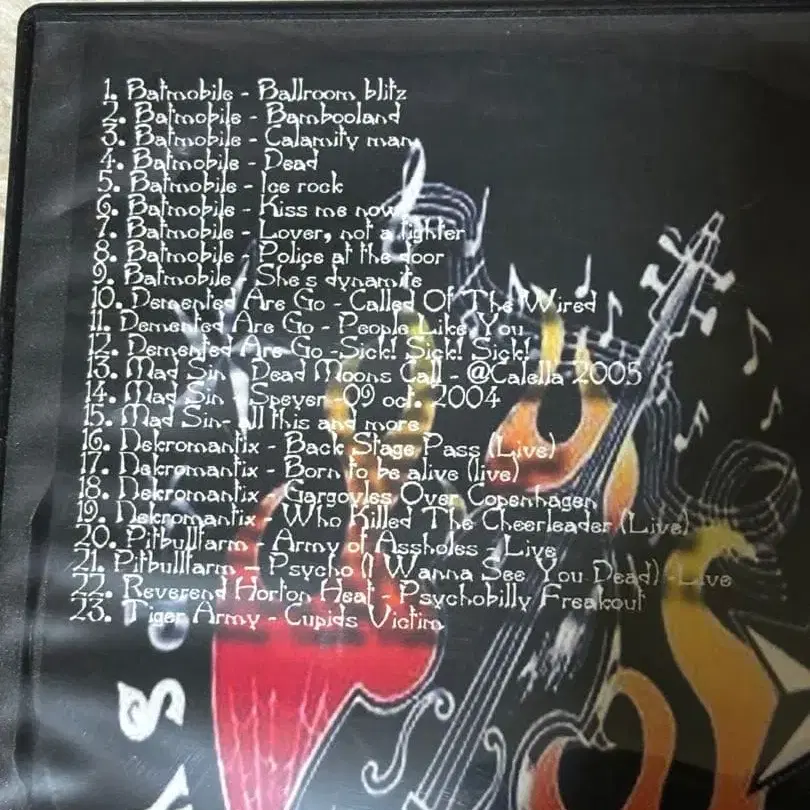 1. Batmobile - Ballroom blitz
2. Batmobile - Bambooland
3. Batmobile - Calamity man
4. Batmobile - Dead
5. Batmobile - Ice rock
6. Batmobile - Kiss me now
7. Batmobile - Lover, not a fighter
8. Batmobile - Police at the door
9. Batmobile - She's dynamite
10. Demented Are Go - Called Of The Wired
11. Demented Are Go - People Like You
12. Demented Are Go -Sick! Sick! Sick!
13. Mad Sin - Dead Moons Call - @Calella 2005
14. Mad Sin - Speyer -09 oct. 2004
15. Mad Sin- all this and more
16. Nekromantix - Back Stage Pass (Live)
17. Nekromantix - Born to be alive (live)
18. Nekromantix - Gargoyles Over Copenhagen
19. Nekromantix - Who Killed The Cheerleader (Live)
20. Pitbullfarm - Army of Assholes - Live
21. Pitbullfarm - Psycho (I Wanna See You Dead) -Live
22. Reverend Horton Heat - Psychobilly Freakout
23. Tiger Army - Cupids Victim